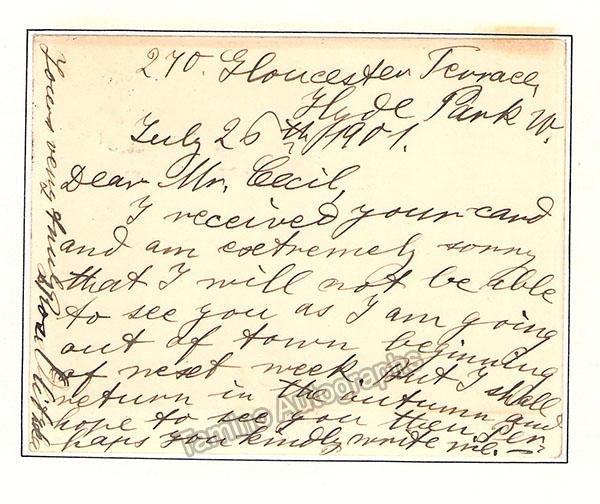 270. Gloucester Terrace,
Hyde Park W.
July 26th 1901.
Dear Mr. Cecil,
I received your card
and am extremely sorry
that I will not be able
to see you as I am going
out of town beginning
of next week, but I shall
return in the autumn and
hope to see you then. Per-
haps you kindly write me. —
Yours very truly
Tamino Autographs